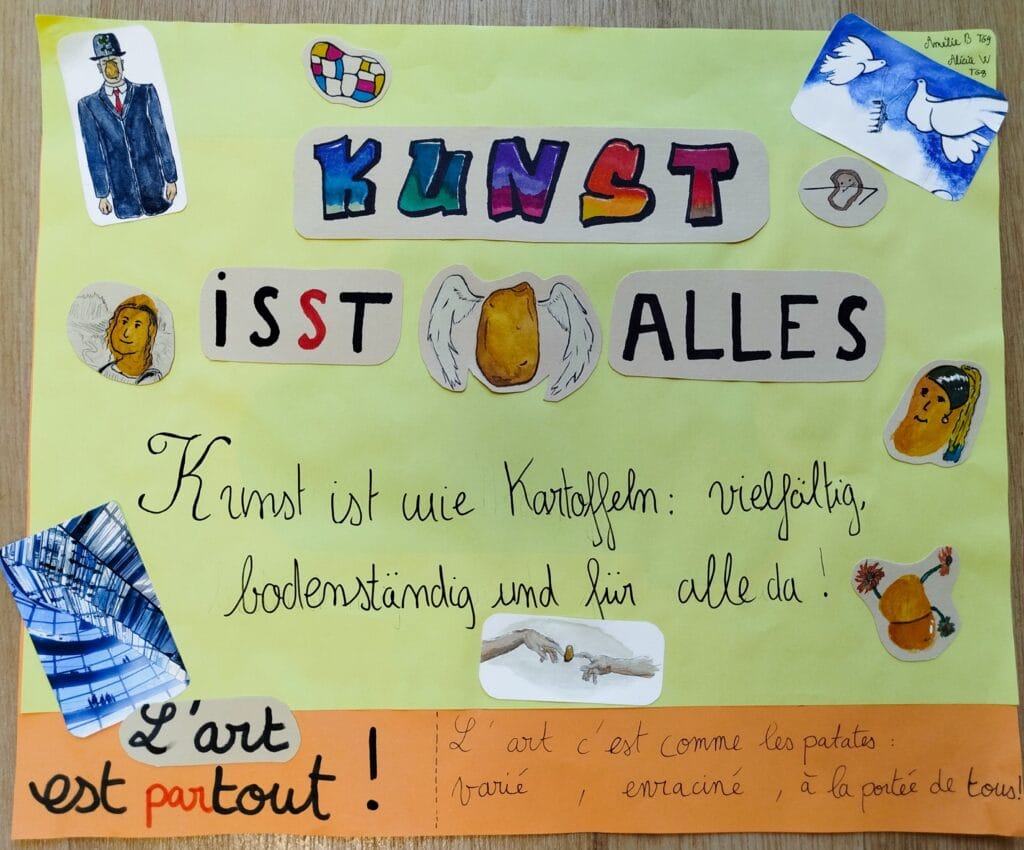 Amélie B TG9
Alicia W
TG8
KUNST
isST ALLES
Kunst ist wie Kartoffeln: vielfältig,
bodenständig und für alle da!
L'art
est partout !
L'art c'est comme les patates :
varié , enraciné , à la portée de tous!